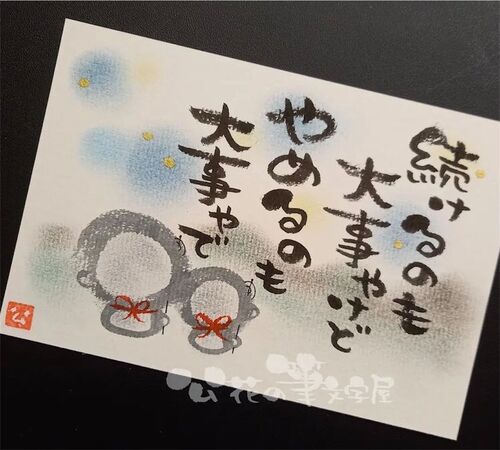 続けるのも
大事やけど
やめるのも
大事やで
公
公花の筆文字屋